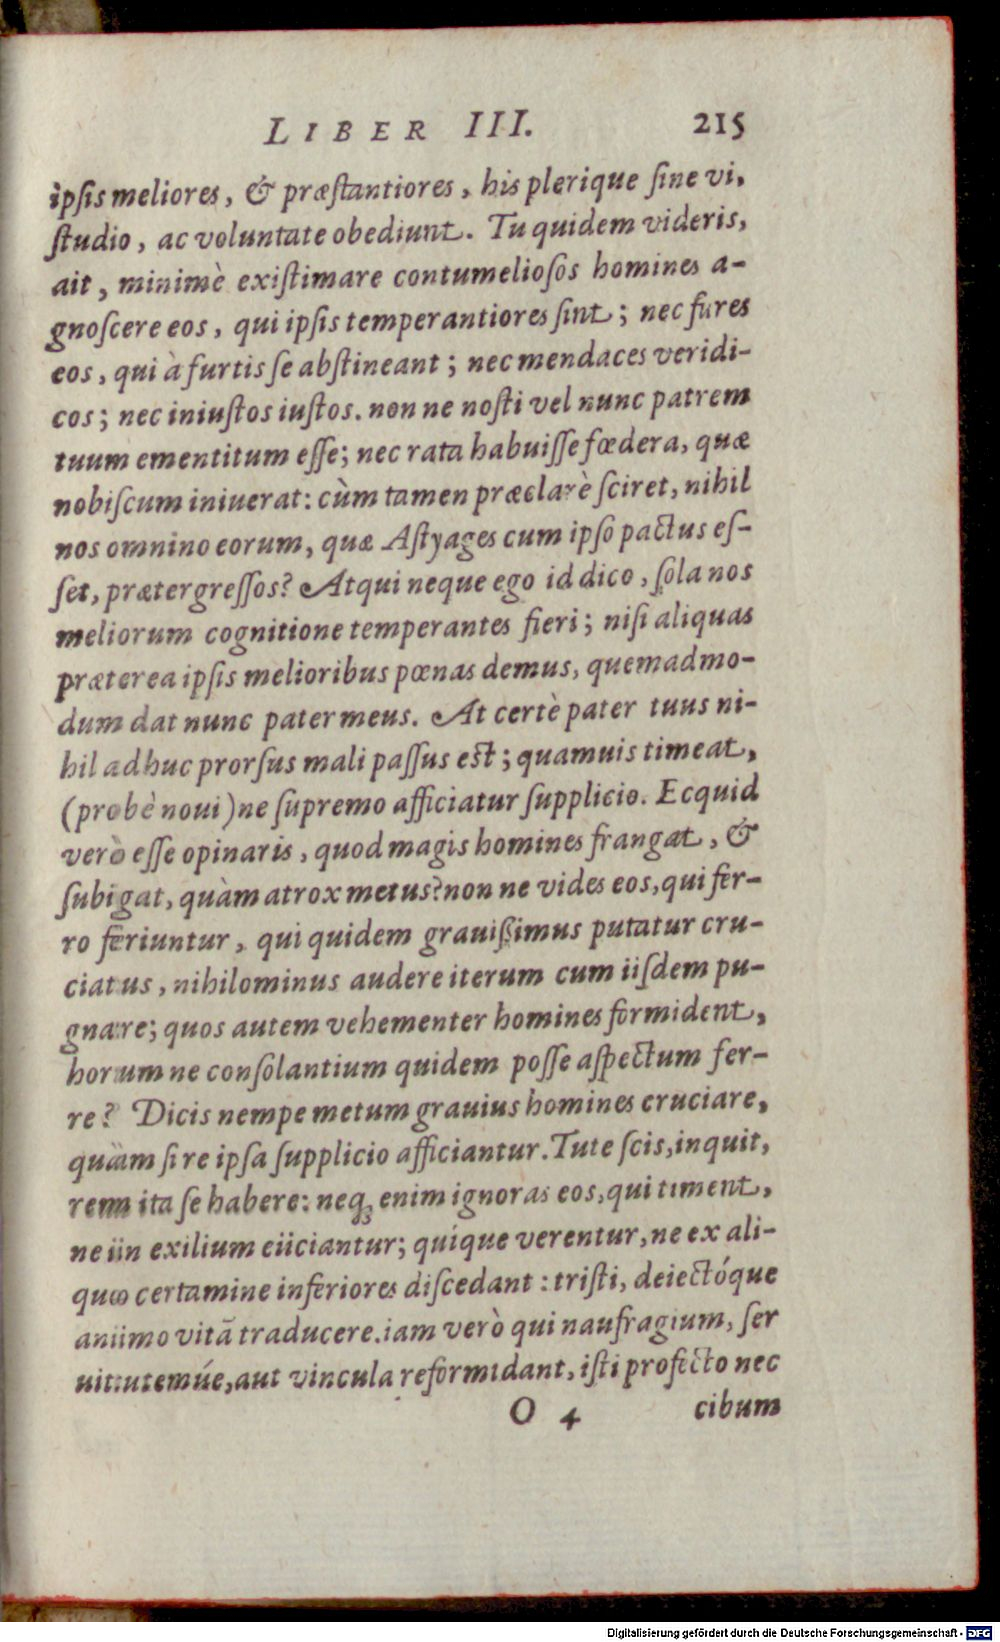 LIBER III. 215
ipſis meliores, & præſtantiores, his plerique ſine vi,
ſtudio, ac voluntate obediunt. Tu quidem videris,
ait, minimè exiſtimare contumelioſos homines a-
gnoſcere eos, qui ipſis temperantiores ſint; nec fures
eos, qui à furtis ſe abſtineant; nec mendaces veridi-
cos; nec iniuſtos iuſtos. non ne noſti vel nunc patrem
tuum ementitum eſſe; nec rata habuiſſe fœdera, quæ
nobiſcum iniuerat: cùm tamen præclarè ſciret, nihil
nos omnino eorum, quæ Aſtyages cum ipſo pactus eſ-
ſet, prætergreſſos? Atqui neque ego id dico, ſola nos
meliorum cognitione temperantes fieri; niſi aliquas
præterea ipſis melioribus pœnas demus, quemadmo-
dum dat nunc pater meus. At certè pater tuus ni-
hil adhuc prorſus mali paſſus est; quamuis timeat,
(probè noui) ne ſupremo afficiatur ſupplicio. Ecquid
verò eſſe opinaris, quod magis homines frangat, &
ſubigat, quàm atrox metus? non ne vides eos, qui fer-
ro feriuntur, qui quidem grauißimus putatur cru-
ciatus, nihilominus audere iterum cum iiſdem pu-
gnare; quos autem vehementer homines formident,
horum ne conſolantium quidem poſſe aſpectum fer-
re? Dicis nempe metum grauius homines cruciare,
quàm ſi re ipſa ſupplicio afficiantur. Tute ſcis, inquit,
rem ita ſe habere: neq; enim ignoras eos, qui timent,
ne in exilium eiiciantur; quíque verentur, ne ex ali-
quo certamine inferiores diſcedant: triſti, deiectóque
animo vitã traducere. iam verò qui naufragium, ſer
uitutemúe, aut vincula reformidant, iſti profecto nec
O 4 cibum
Digitalisierung gefördert durch die Deutsche Forschungsgemeinschaft - DFG